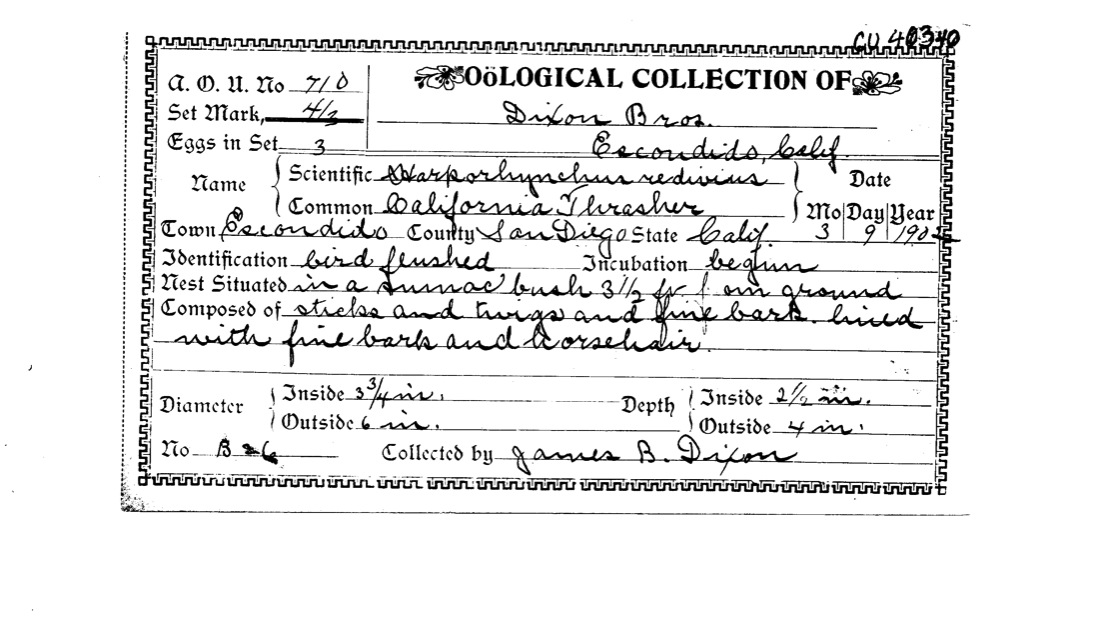 CU 40340
A. O. U. No 710
OöLOGICAL COLLECTION OF
Set Mark, 4/3
Dixon Bros.
Eggs in Set 3
Escondido, Calif.
Name
Scientific Harporhynchus redivius
Date
Common California Thrasher
Mo Day Year
Town Escondido County San Diego State Calif. 3 9 190
Identification bird flushed Incubation begun
Nest Situated in a sumac bush 3 1/2 from ground
Composed of sticks and twigs and fine bark. lined
with fine bark and horsehair.
Diameter
Inside 3 3/4 in.
Depth
Inside 2 1/2 in.
Outside 6 in.
Outside 4 in.
No B 26
Collected by James B. Dixon